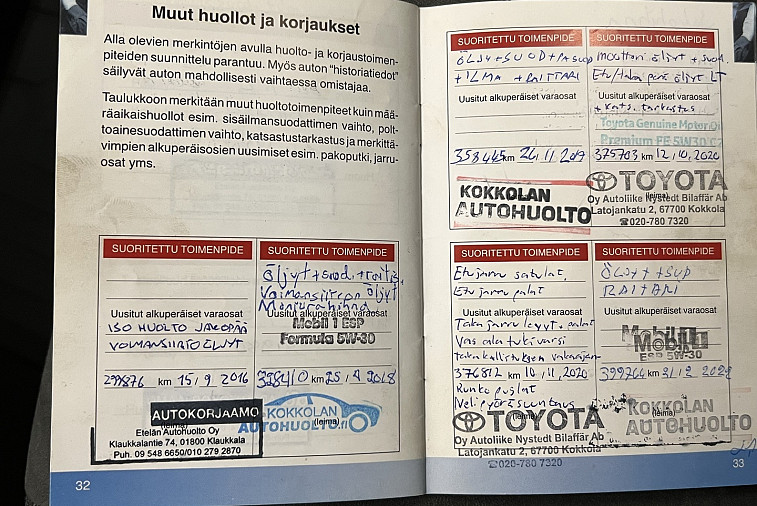 Muut huollot ja korjaukset
Alla olevien merkintöjen avulla huolto- ja korjaustoimen-
piteiden suunnittelu parantuu. Myös auton "historiatiedot"
säilyvät auton mahdollisesti vaihtaessa omistajaa.
Taulukkoon merkitään muut huoltotoimenpiteet kuin mää-
räaikaishuollot esim. sisäilmansuodattimen vaihto, polt-
toainesuodattimen vaihto, katsastustarkastus ja merkittä-
vimpien alkuperäisosien uusimiset esim. pakoputki, jarru-
osat yms.
SUORITETTU TOIMENPIDE
Uusitut alkuperäiset varaosat
ISO HUOLTO JAKOPÄÄ
VOIMANSIIRTO ÖLJYT
km 15/9 2016
AUTOKORJAAMO
(leima)
Etelän Autohuolto Oy
Klaukkalantie 74, 01800 Klaukkala
Puh. 09 548 6650/010 279 2870
SUORITETTU TOIMENPIDE
Öljyt + suod. +
Voimansiirron öljyt
Uusitut alkuperäiset varaosat
Mobil 1 ESP
Formula 5W-30
km 2018
KOKKOLAN
(leima)
AUTOHUOLTO.FI
32
SUORITETTU TOIMENPIDE
ÖLJY + SUOD +
+ ILMA + RAITTARI
Uusitut alkuperäiset varaosat
km 26/11
KOKKOLAN
AUTOHUOLTO
SUORITETTU TOIMENPIDE
moottori öljyt + suod.
Etu/taka perä öljyt LT
Uusitut alkuperäiset varaosat
+ kats. tarkastus
Toyota Genuine Motor Oil
Premium FE 5W30 C2
375703 km 12/10, 2020
TOYOTA
(leima)
Oy Autoliike Nystedt Bilaffär Ab
Latojankatu 2, 67700 Kokkola
☎020-780 7320
SUORITETTU TOIMENPIDE
Etu jarru satulat.
Etu jarru palat
Uusitut alkuperäiset varaosat
Taka jarru levyt + palat
Vas ala tukivarsi
taka kallistuksen vakaajan
376812 km 10/11, 2020
Runko puslat
Nelipyöräsuuntaus
TOYOTA
(leima)
Oy Autoliike Nystedt Bilaffär Ab
Latojankatu 2, 67700 Kokkola
☎020-780 7320
SUORITETTU TOIMENPIDE
ÖLJYT + SUD
RAITARI
Uusitut alkuperäiset varaosat
Mobil 1
ESP 5W-30
km
KOKKOLAN
(leima)
AUTOHUOLTO
33